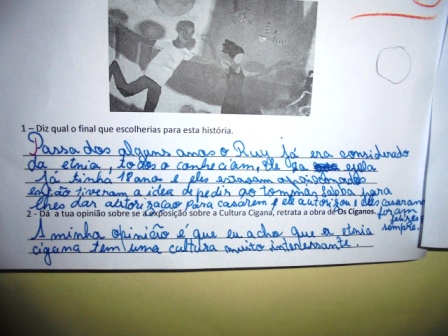 1 – Diz qual o final que escolherias para esta história.
Passados alguns anos o Ruy já era considerado
da etnia, todos o conheciam, ele já e ela
já tinha 18 ano e eles estavam apaixonados
então tiveram a idea de pedir ao tommás Sabba para
lhes dar autorização para casarem e ele autorizou e eles casaram
2 - Dá a tua opinião sobre se a exposição sobre a Cultura Cigana, retrata a obra de Os Ciganos.
foram felizes
sempre.
A minha opinião é que eu acho que a etnia
cigana tem uma cultura muito interessante.